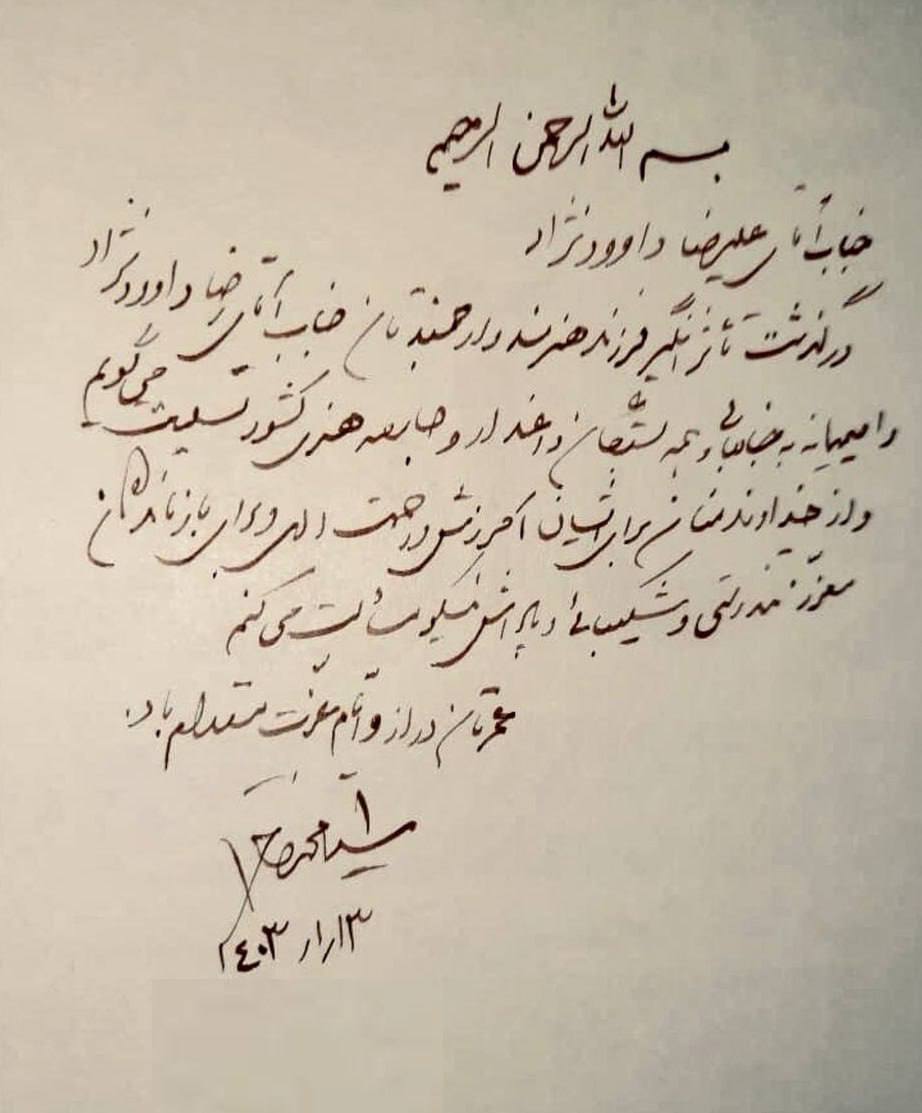 بسم الله الرحمن الرحیم
جناب آقای علیرضا داوودنژاد
درگذشت تأثر انگیز فرزند هنرمند و ارجمندتان جناب آقای رضا داوودنژاد
را صمیمانه به جنابعالی و همه بستگان داغدار و جامعه هنری کشور تسلیت می‌گویم
و از خداوند منان برای ایشان آمرزش و رحمت الهی و برای بازماندگان
معزز تندرستی و شکیبایی و پاداش نیکو مسألت می‌کنم
عمرتان دراز و ایام عزت مستدام باد.
سید محمد خاتمی
۱۴۰۳/۱/۱۳